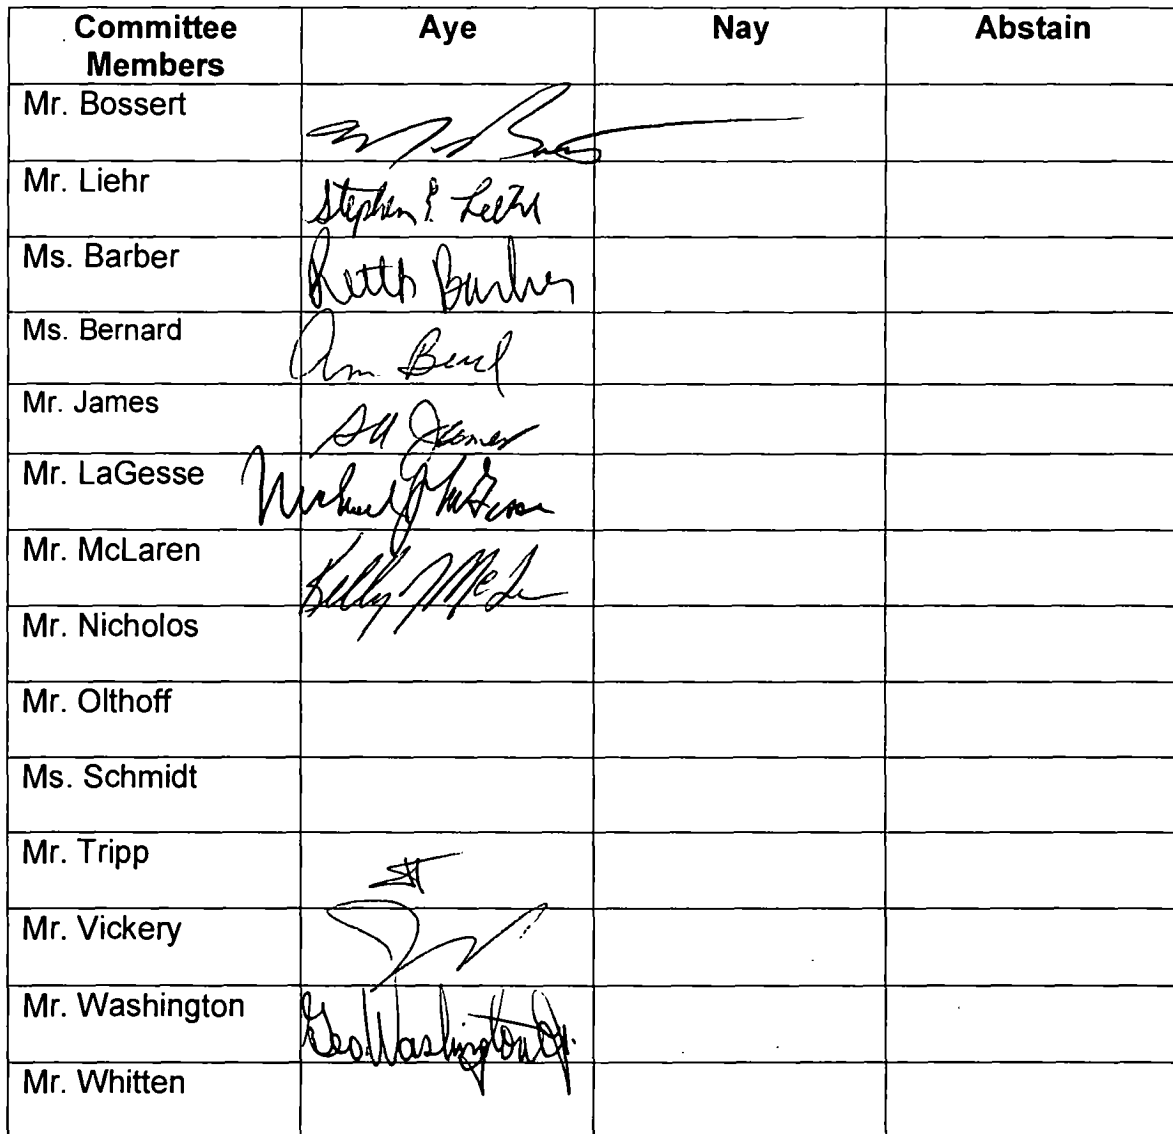 Committee Members Aye Nay Abstain
Mr. Bossert
Mr. Liehr Stephen E. Liehr
Ms. Barber Ruth Barber
Ms. Bernard
Mr. James James
Mr. LaGesse Michael J LaGesse
Mr. McLaren Kelly Mc
Mr. Nicholos
Mr. Olthoff
Ms. Schmidt
Mr. Tripp
Mr. Vickery
Mr. Washington Geo Washington Jr.
Mr. Whitten